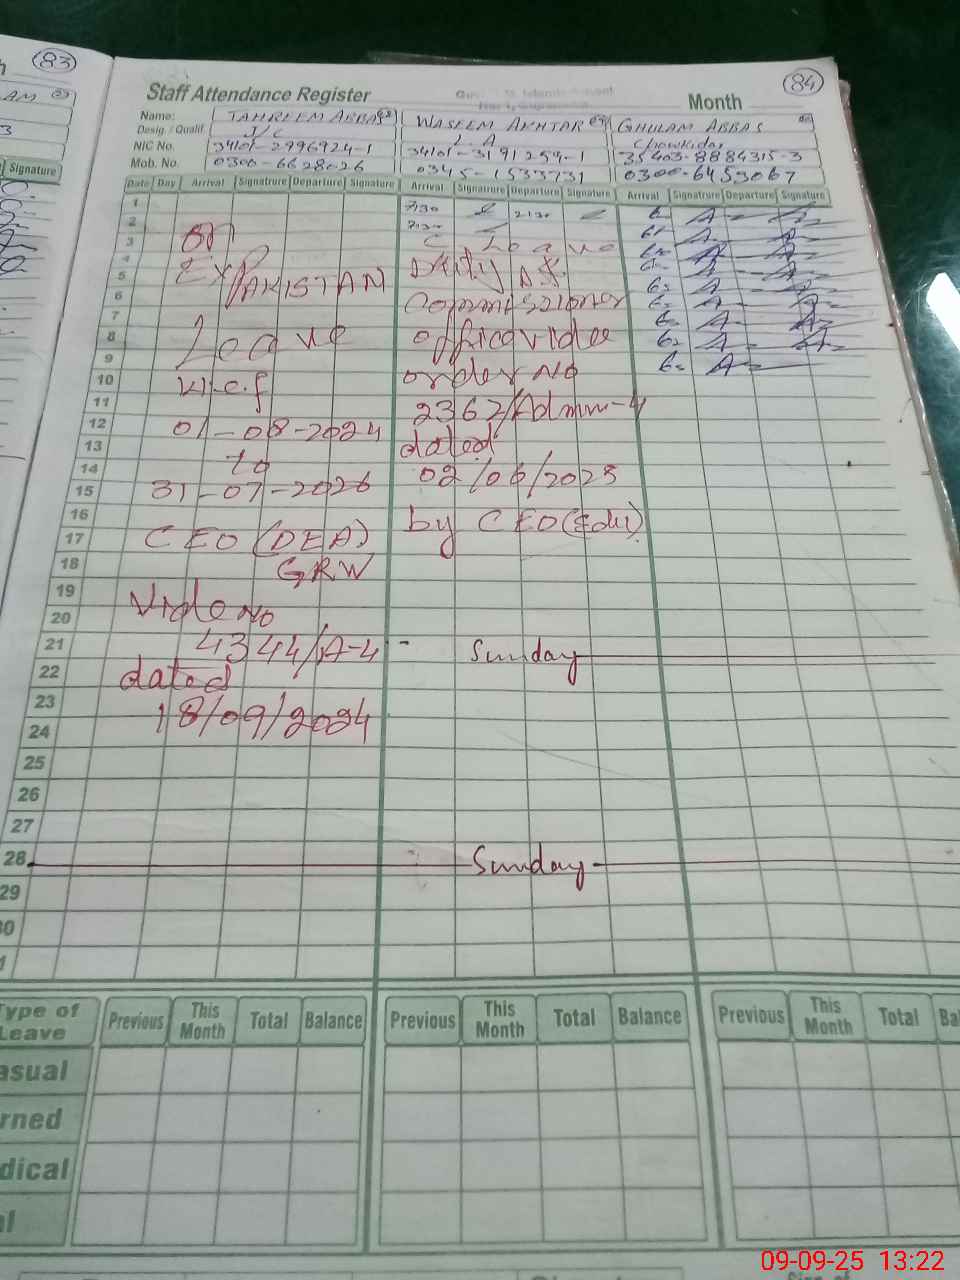 83
84
Staff Attendance Register
Month
Name: TAHREEM ABBAS WASEEM AKHTAR GHULAM ABBAS
Desig. / Qualif. J/C L.A Chowkidar
NIC No. 34101-2996924-1 34101-3191259-1 35403-8884315-3
Mob. No. 0300-6628026 0345-1533731 0300-6453067
Signature
Date Day Arrival Signatrure Departure Signature Arrival Signatrure Departure Signature Arrival Signatrure Departure Signature
1 7:30 2:30
2 7:30
3 C Leave
4
5
6
7
8
9
10
11
12
13
14
15
16
17
18
19
20
21
22
23
24
25
26
27
28
29
30
On
Ex PAKISTAN
Leave
w.e.f
01-08-2024
to
31-07-2026
CEO (DEA)
GRW
Vide No
4344/A-4
dated
18/09/2024
Duty At
Commissioner
office vide
order No
2362/Admin-4
dated
02/06/2025
by CEO (Edu)
Sunday
Sunday
Type of Leave Previous This Month Total Balance Previous This Month Total Balance Previous This Month Total
09-09-25 13:22